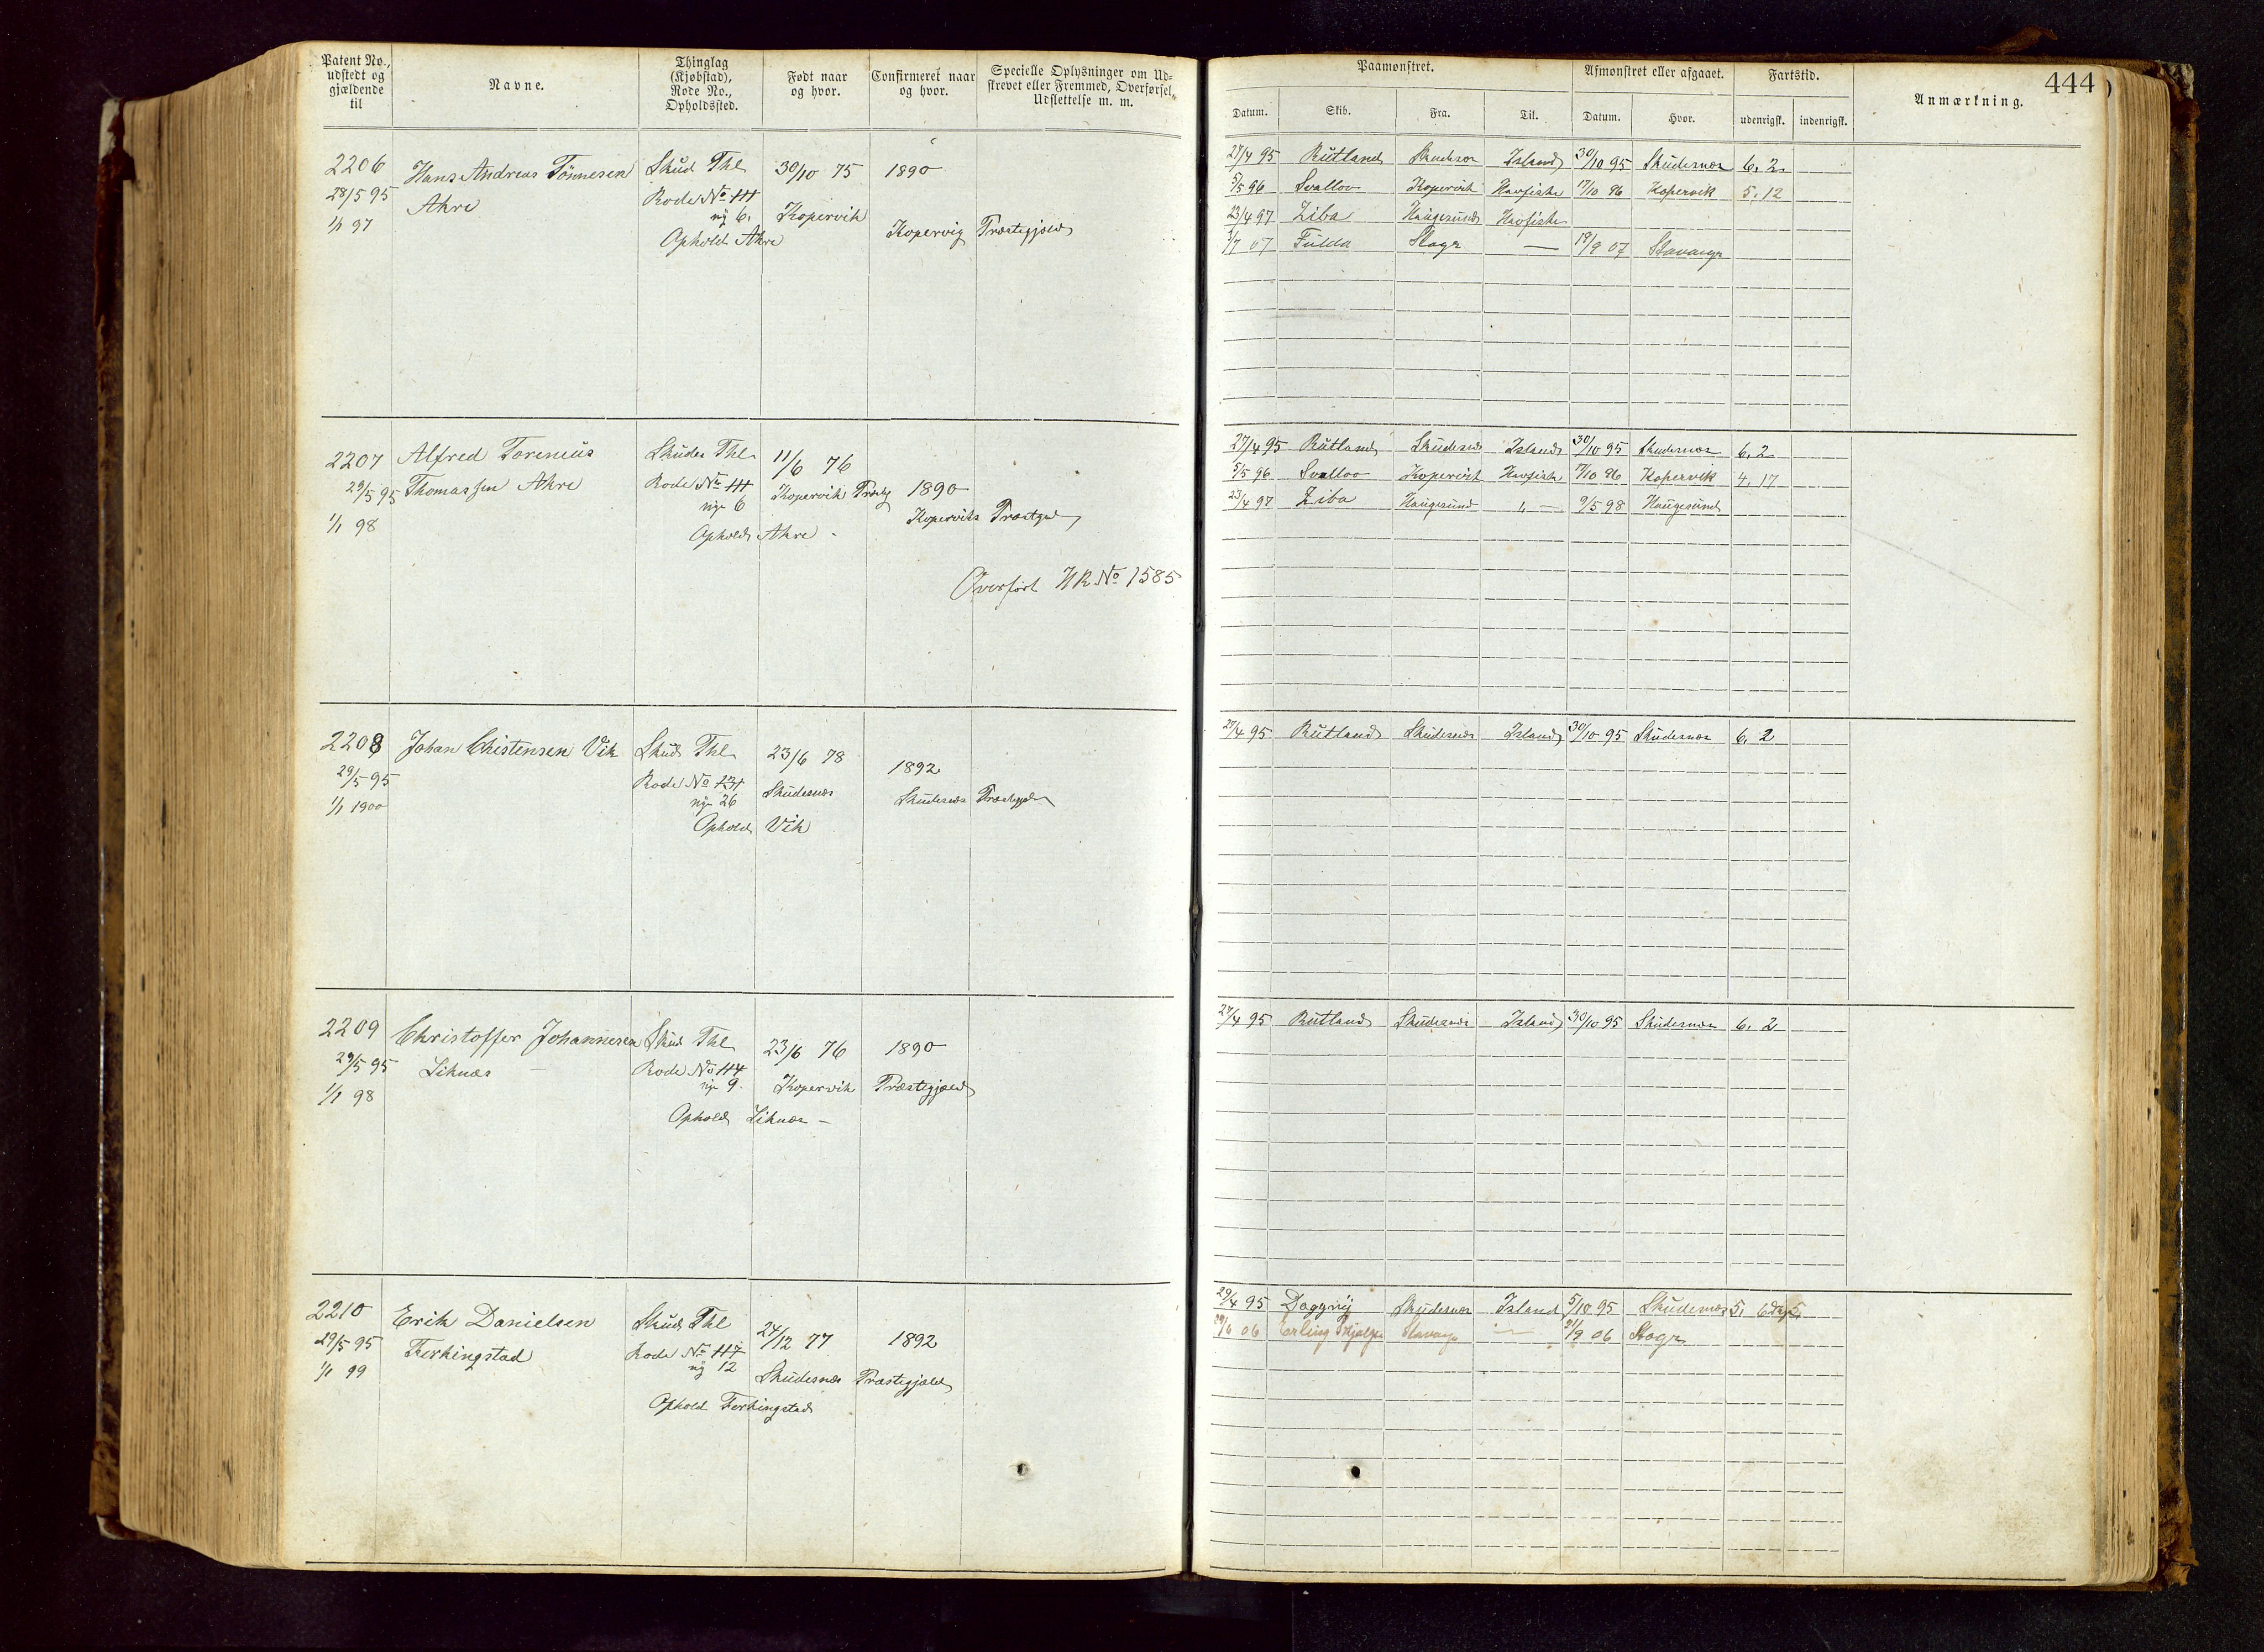 Patent No., udstedt og gjældende til
Navne.
Thinglag (Kjøbstad), Rode No., Opholdssted.
Født naar og hvor.
Confirmeret naar og hvor.
Specielle Oplysninger om Udskrevet eller Fremmed, Overførsel, Udslettelse m. m.
2206 Hans Andreas Tönnesen Skud Thl 30/10 75 1890
28/5 95 Ahre Rode No 111
1/1 97 ny 6. Kopervik Kopervig Præstegjæld
Ophold Ahre
2207 Alfred Torenius Skudes Thl 11/6 76
29/5 95 Thomassen Ahre Rode No 111 Kopervik Præstg 1890
1/1 98 nye 6 Koperviks Præstgjd
Ophold Ahre
Overført HR No 1585
2208 Johan Christensen Vik Skud Thl 23/6 78 1892
29/5 95 Rode No 131 Skudesnæs
1/1 1900 nye 26 Skudesnæs Præstegjæld
Ophold Vik
2209 Christoffer Johannesen Skud Thl 23/6 76 1890
29/5 95 Liknæs Rode No 114
1/1 98 nye 9. Kopervik Præstegjæld
Ophold Liknæs
2210 Erik Danielsen Skud Thl 24/12 77 1892
29/5 95 Ferkingstad Rode No 117
1/1 99 ny 12 Skudesnæs Præstegjæld
Ophold Ferkingstad
444
Paamønstret. Afmønstret eller afgaaet. Fartstid. Anmærkning.
Datum. Skib. Fra. Til. Datum. Hvor. udenrigsk. indenrigsk.
27/4 95 Rutland Skudesn Island 30/10 95 Skudesnæs 6. 2
5/5 96 Svallov Kopervik Havfiske 17/10 96 Kopervik 5. 12
23/4 97 Ziba Haugesund Havfiske
1/7 07 Fulda Slagr — 19/9 07 Stavanger
27/4 95 Rutland Skudesnæs Island 30/10 95 Skudesnæs 6. 2
5/5 96 Svallov Kopervik Havfiske 17/10 96 Kopervik 4. 17
23/4 97 Ziba Haugesund „ — 9/5 98 Haugesund
27/4 95 Rutland Skudesnæs Island 30/10 95 Skudesnæs 6. 2
27/4 95 Rutland Skudesnæs Island 30/10 95 Skudesnæs 6. 2
29/4 95 Daggry Skudesnæs Island 5/10 95 Skudesnæs 5. 6
06 Erling Stavanger — 9 06